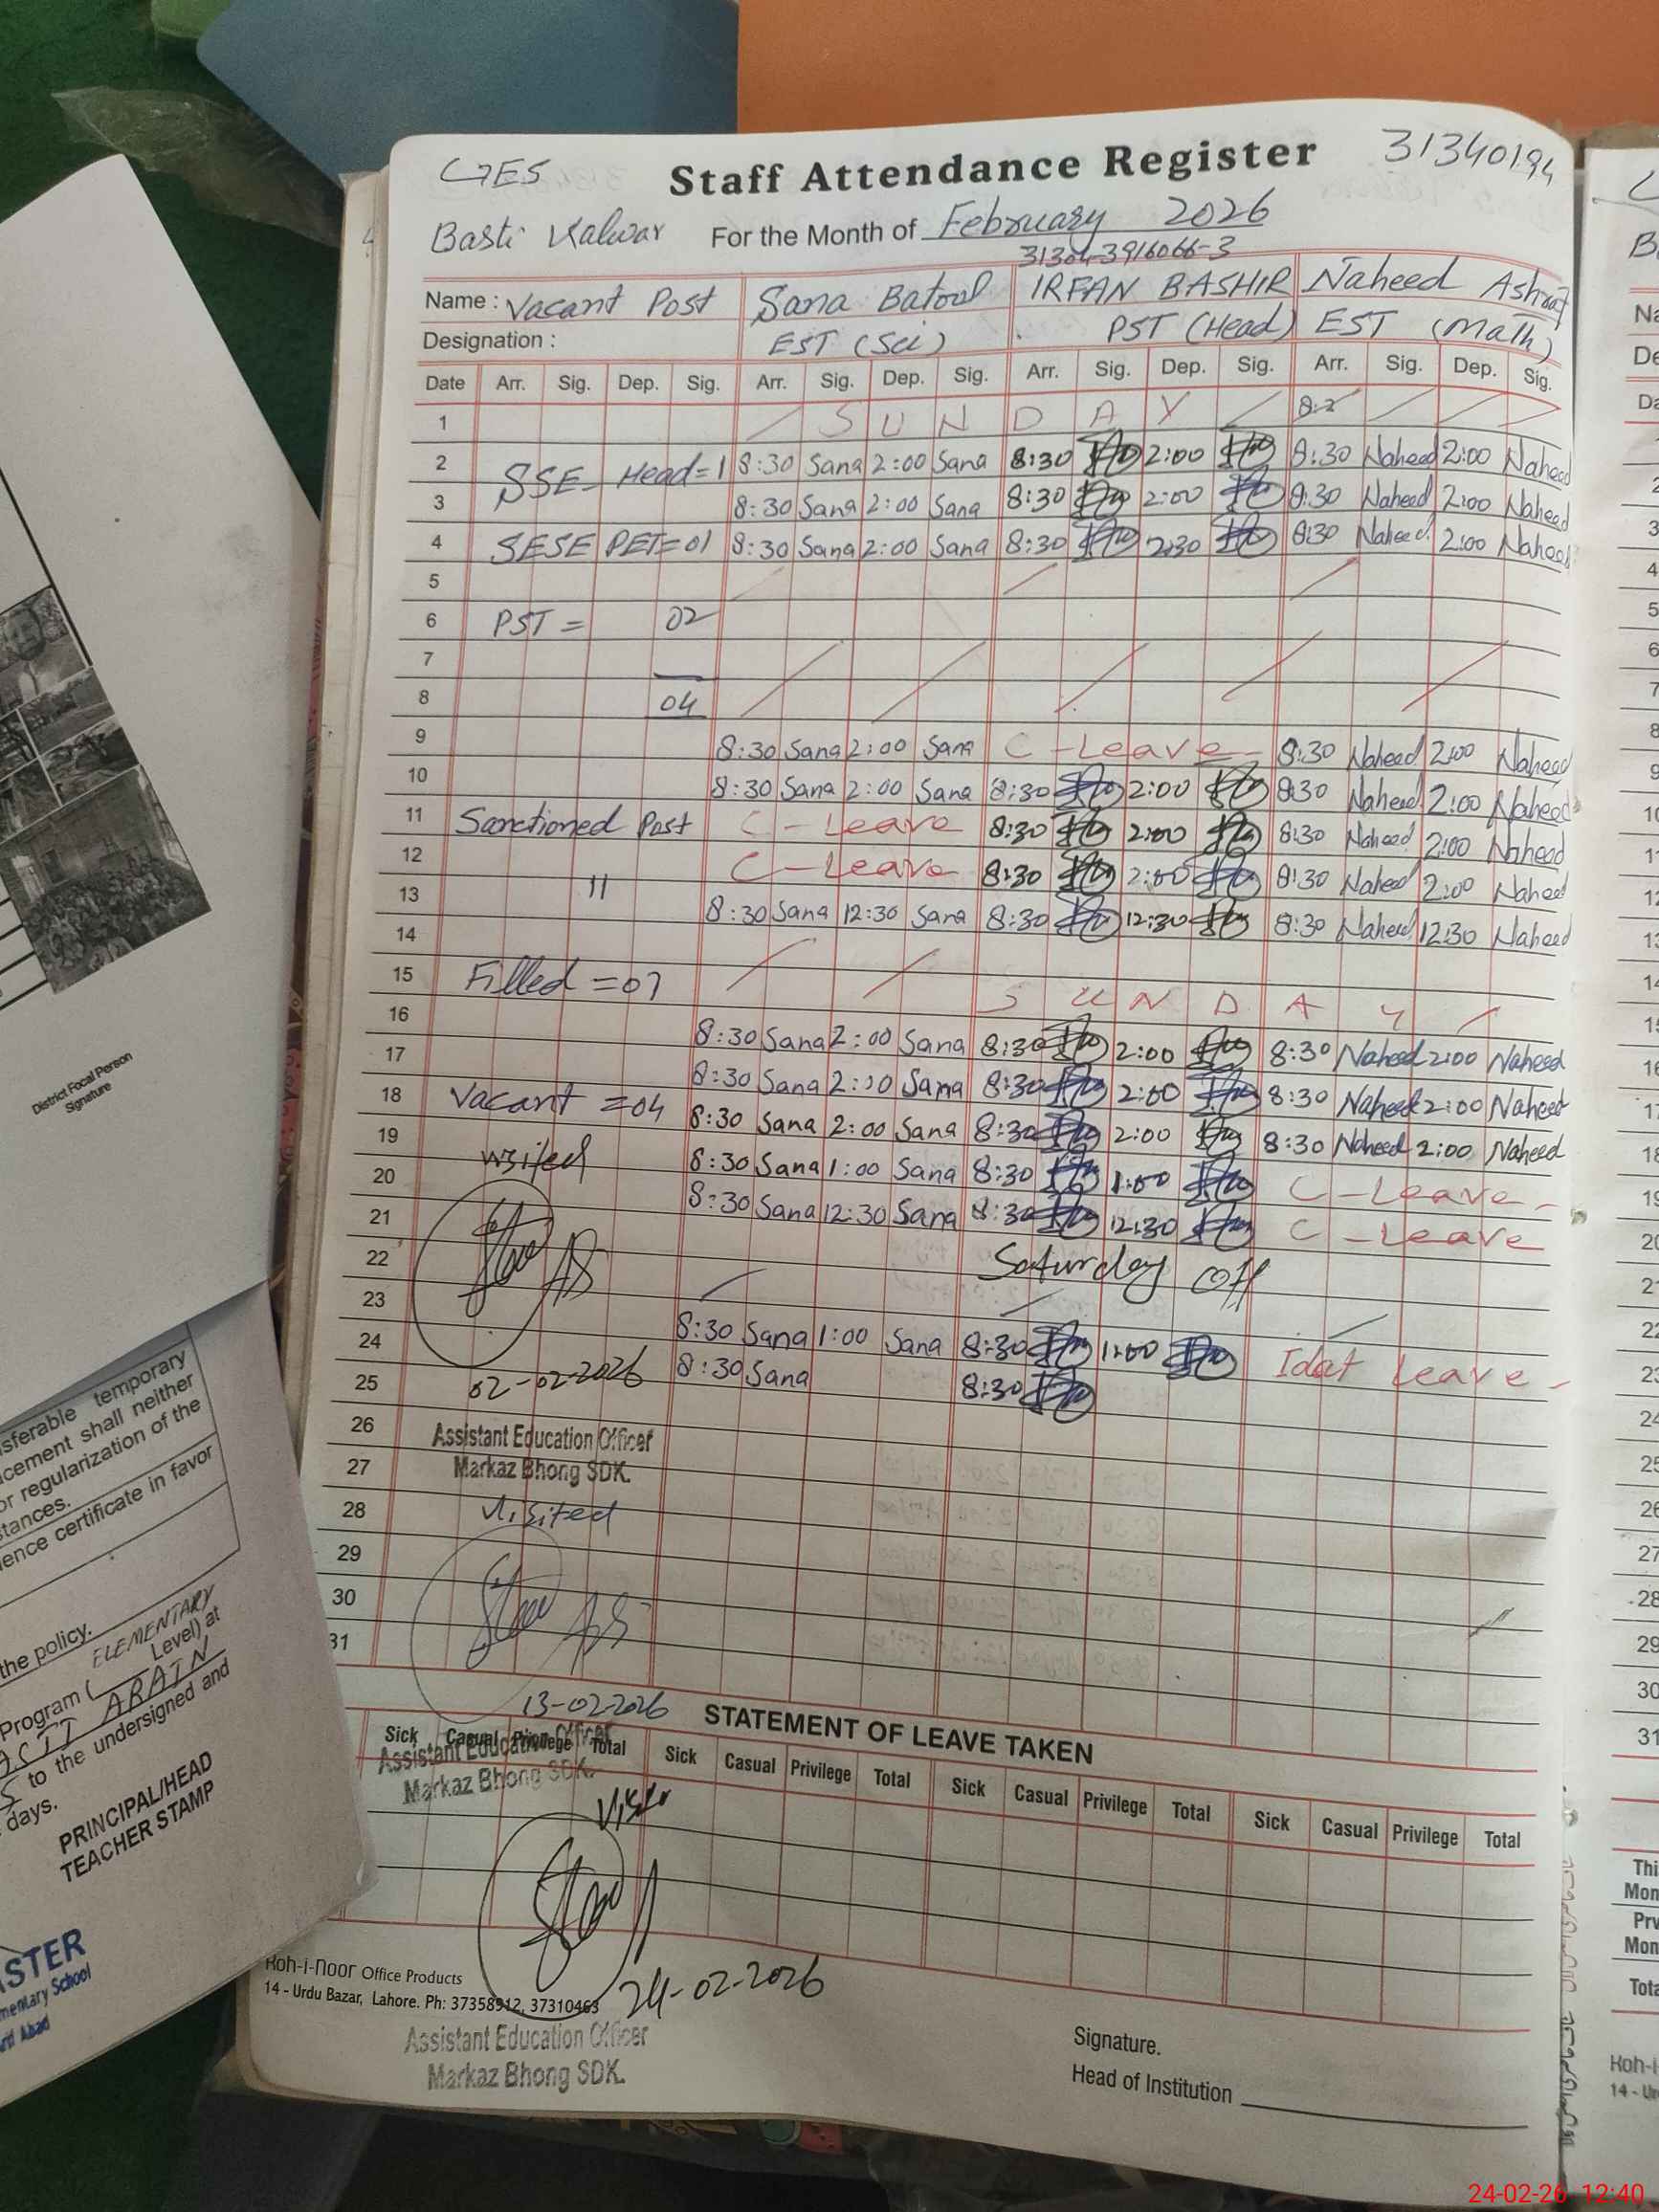 GES
Staff Attendance Register
31340194
Basti Kalwar
For the Month of February 2026
31304-3916066-3
Name : Vacant Post Sana Batool IRFAN BASHIR Naheed Ashraf
Designation : EST (Sci) PST (Head) EST (Math)
Date Arr. Sig. Dep. Sig. Arr. Sig. Dep. Sig. Arr. Sig. Dep. Sig. Arr. Sig. Dep. Sig.
1 S U N D A Y
2 SSE- Head=1 8:30 Sana 2:00 Sana 8:30 2:00 8:30 Naheed 2:00 Naheed
3 8:30 Sana 2:00 Sana 8:30 2:00 8:30 Naheed 2:00 Naheed
4 SESE PET=01 8:30 Sana 2:00 Sana 8:30 2:30 8:30 Naheed 2:00 Naheed
5
6 PST = 02
7
8 04
9 8:30 Sana 2:00 Sana C-Leave 8:30 Naheed 2:00 Naheed
10 8:30 Sana 2:00 Sana 8:30 2:00 8:30 Naheed 2:00 Naheed
11 Sanctioned Post C-Leave 8:30 2:00 8:30 Naheed 2:00 Naheed
12 C-Leave 8:30 2:00 8:30 Naheed 2:00 Naheed
13 11 8:30 Sana 12:30 Sana 8:30 12:30 8:30 Naheed 12:30 Naheed
14
15 Filled =07 S U N D A Y
16 8:30 Sana 2:00 Sana 8:30 2:00 8:30 Naheed 2:00 Naheed
17 8:30 Sana 2:00 Sana 8:30 2:00 8:30 Naheed 2:00 Naheed
18 Vacant =04 8:30 Sana 2:00 Sana 8:30 2:00 8:30 Naheed 2:00 Naheed
19 8:30 Sana 1:00 Sana 8:30 1:00 C-Leave
20 8:30 Sana 12:30 Sana 8:30 12:30 C-Leave
21 Saturday Off
22
23 8:30 Sana 1:00 Sana 8:30 1:00 Idat Leave
24 8:30 Sana 8:30
25 02-02-2026
26 Assistant Education Officer
27 Markaz Bhong SDK.
28 Visited
29
30
31
13-02-2026
STATEMENT OF LEAVE TAKEN
Sick Casual Privilege Total Sick Casual Privilege Total Sick Casual Privilege Total Sick Casual Privilege Total
Assistant Education Officer
Markaz Bhong SDK.
24-02-2026
Koh-i-Noor Office Products
14 - Urdu Bazar, Lahore. Ph: 37358912, 37310463
Assistant Education Officer
Markaz Bhong SDK.
Signature.
Head of Institution
District Focal Person
Signature
sferable temporary
cement shall neither
or regularization of the
stances.
ience certificate in favor
the policy.
ELEMENTARY
Program ( Level) at
ARAIN
S to the undersigned and
days.
PRINCIPAL/HEAD
TEACHER STAMP
ASTER
mentary School
Abad
24-02-26 12:40